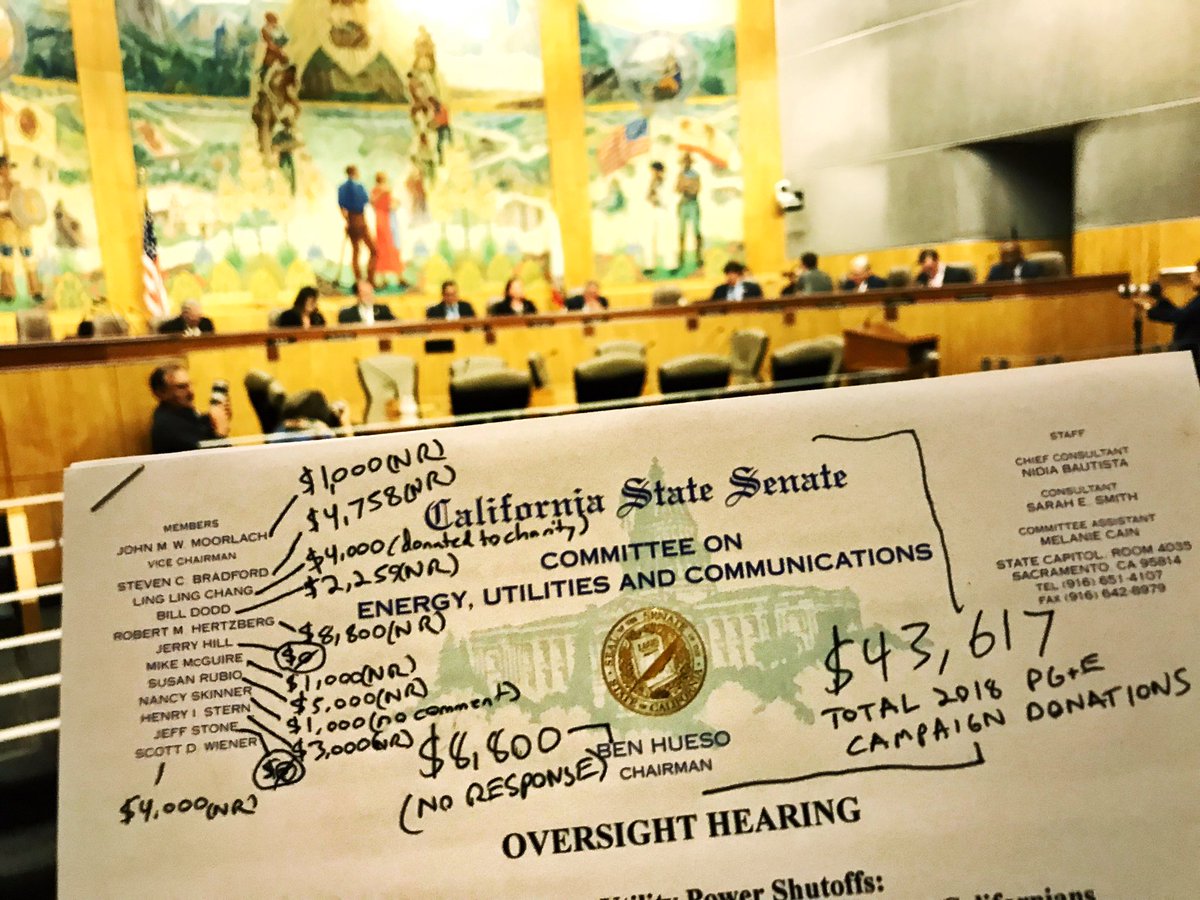 $1,000 (NR)
$4,758 (NR)
$4,000 (donated to charity)
$2,259 (NR)
$8,800 (NR)
$0
$1,000 (NR)
$5,000 (NR)
$1,000 (no comment)
$3,000 (NR)
$0
$4,000 (NR)
MEMBERS
JOHN M. W. MOORLACH
VICE CHAIRMAN
STEVEN C. BRADFORD
LING LING CHANG
BILL DODD
ROBERT M. HERTZBERG
JERRY HILL
MIKE McGUIRE
SUSAN RUBIO
NANCY SKINNER
HENRY I. STERN
JEFF STONE
SCOTT D. WIENER
California State Senate
COMMITTEE ON
ENERGY, UTILITIES AND COMMUNICATIONS
$8,800
(NO RESPONSE)
BEN HUESO
CHAIRMAN
$43,617
TOTAL 2018 PG+E
CAMPAIGN DONATIONS
STAFF
CHIEF CONSULTANT
NIDIA BAUTISTA
CONSULTANT
SARAH E. SMITH
COMMITTEE ASSISTANT
MELANIE CAIN
STATE CAPITOL, ROOM 4035
SACRAMENTO, CA 95814
TEL (916) 651-4107
FAX (916) 642-8979
OVERSIGHT HEARING
Utility Power Shutoffs:
Californians